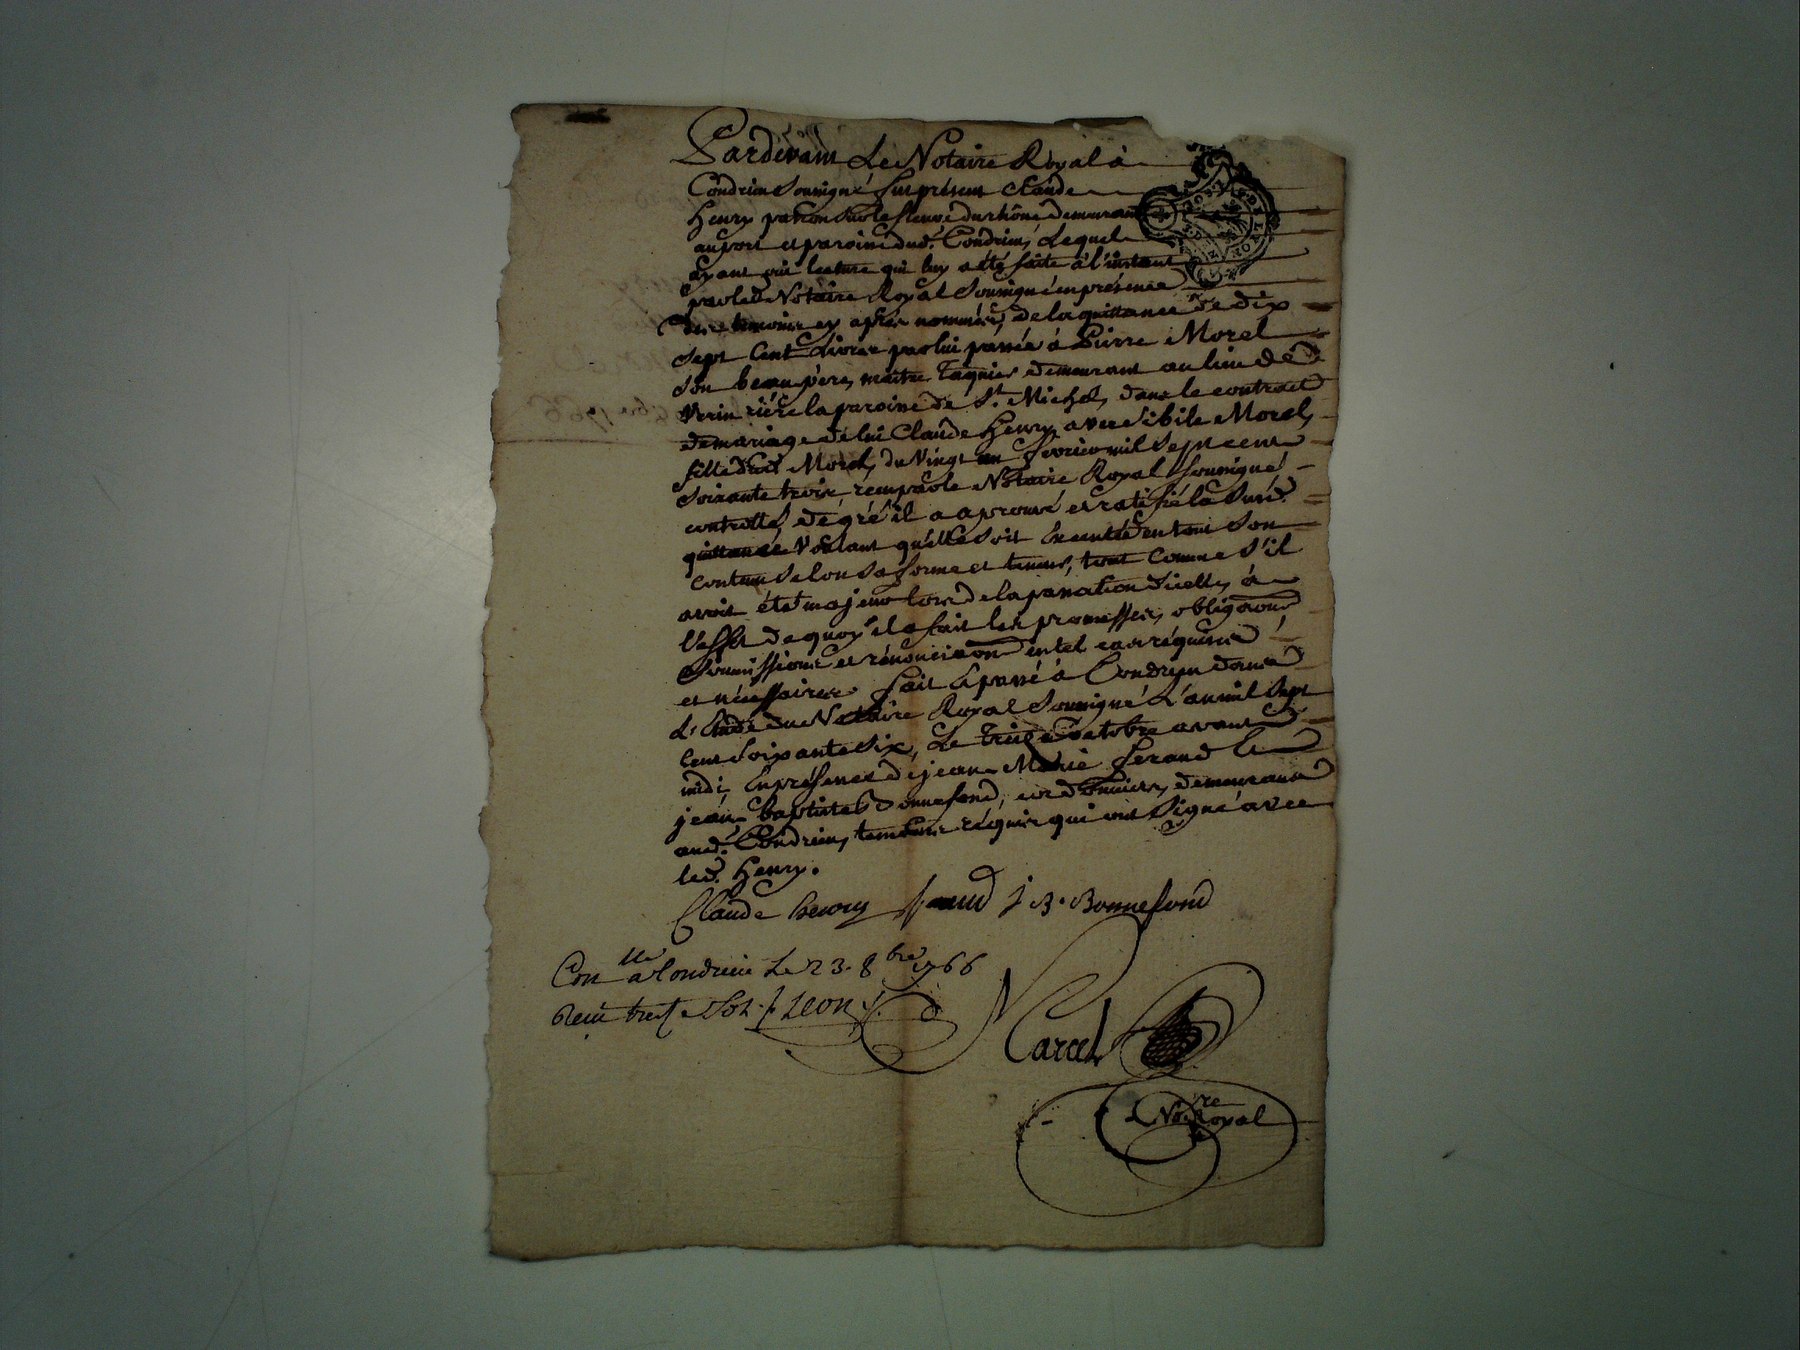 Pardevant Le Notaire Royal à
Condrieu Soussigné fut présent Claude
Henry patron sur le fleuve du rhône demeurant
au port et paroisse dud. Condrieu, Lequel
ayant oui lecture qui luy a été faite à l'instant
par led Notaire Royal Soussigné en présence
des temoins cy après nommés, de la quittance de dix
sept Cent Livres par lui passée à Pierre Morel
Son beau père, maitre demeurant au lieu de
Verin rière la paroisse de St. Michel, dans le contract
de mariage de lui Claude Henry avec Sibile Morel,
fille dud Morel, du Vingt un fevrier mil Sept cent
Soixante trois, reçu par le Notaire Royal Soussigné
controllé, de gré il a aprouvé et ratifié la Susd.
quittance Voulant qu'elle Soit Executée en tout Son
contenu Selon Sa forme et teneur, tout comme S'il
avoit été majeur lors de la passation d'icelle, à
l'effet de quoy il a fait les promesses, obligaons
Soumissions et rénonciaons en tel cas réquises
et nécessaires fait & passé à Condrieu dans
L'Etude du Notaire Royal Soussigné L'an mil Sept
Cent Soixante Six, Le treize octobre avant
midi, En présence de jean Marie feraud &
jean Baptiste Bonnefond, cordonnier, demeurant
aud. Condrieu, temoins réquis qui ont Signé avec
led. Henry.
Claude henry feraud J. B. Bonnefond
Conllé a Condrieu Le 23. 8bre 1766
Reçu treize Sols Leon
Marcel
Nore Royal